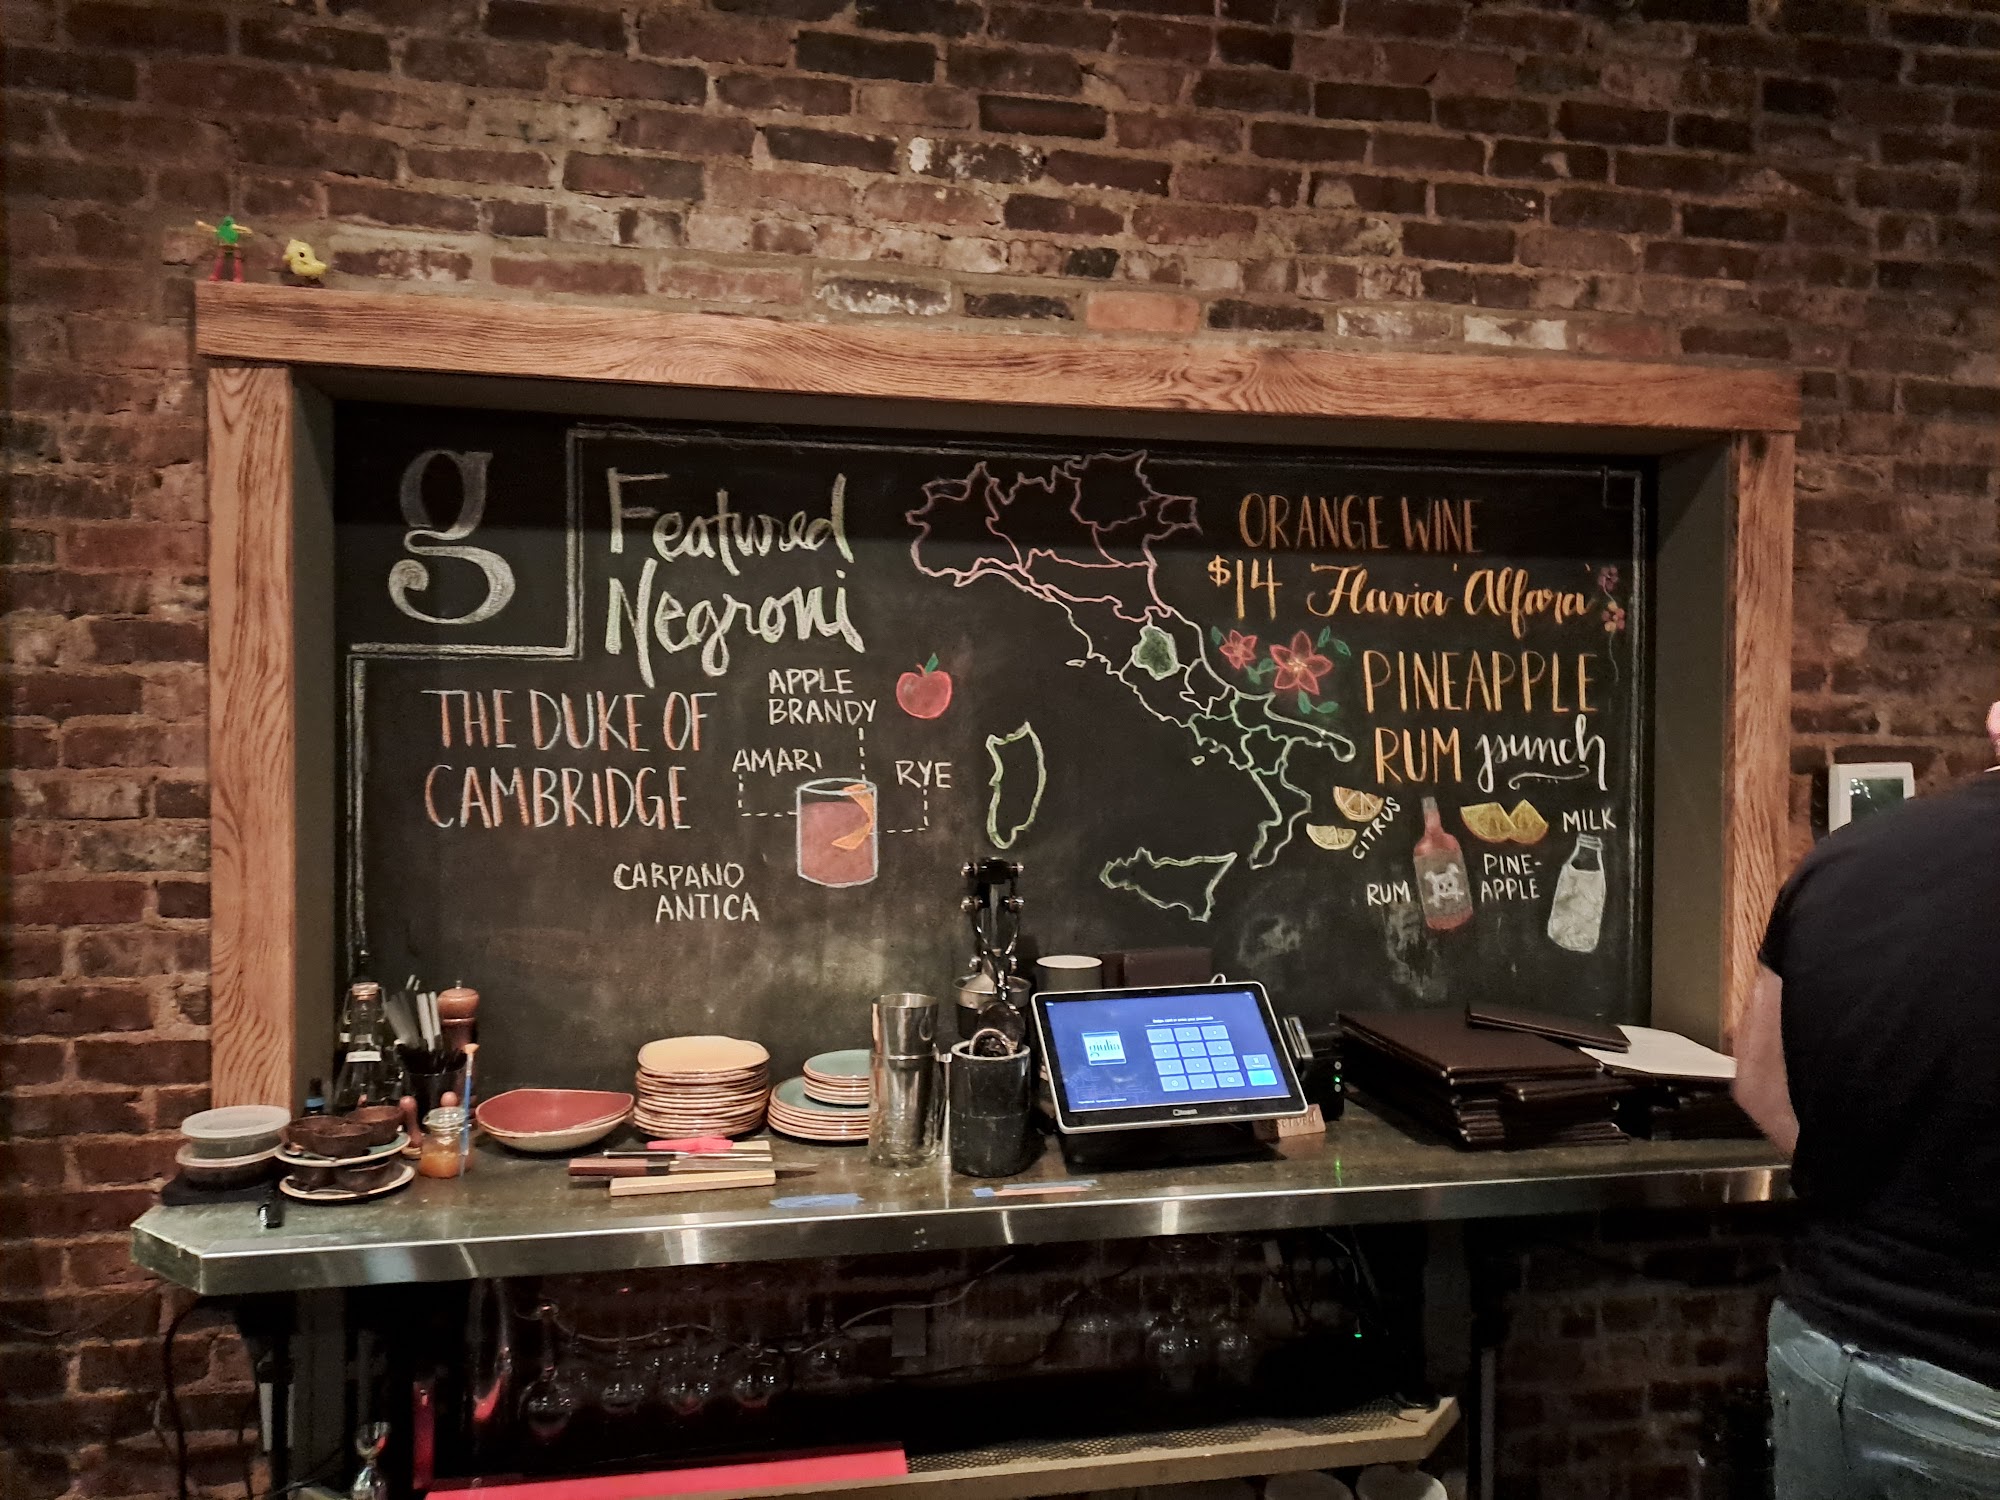 g
Featured
Negroni
THE DUKE OF
CAMBRIDGE
APPLE
BRANDY
AMARI
RYE
CARPANO
ANTICA
ORANGE WINE
$14 'Flavia' Alfara'
PINEAPPLE
RUM punch
CITRUS
RUM
PINE-
APPLE
MILK
giulia